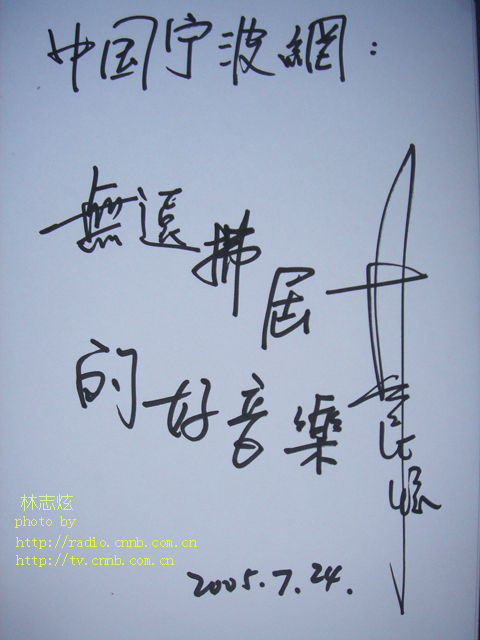 中国宁波網：
無遠拂屆
的好音樂
林志炫
photo by
http://radio.cnnb.com.cn
http://tv.cnnb.com.cn
2005.7.24.